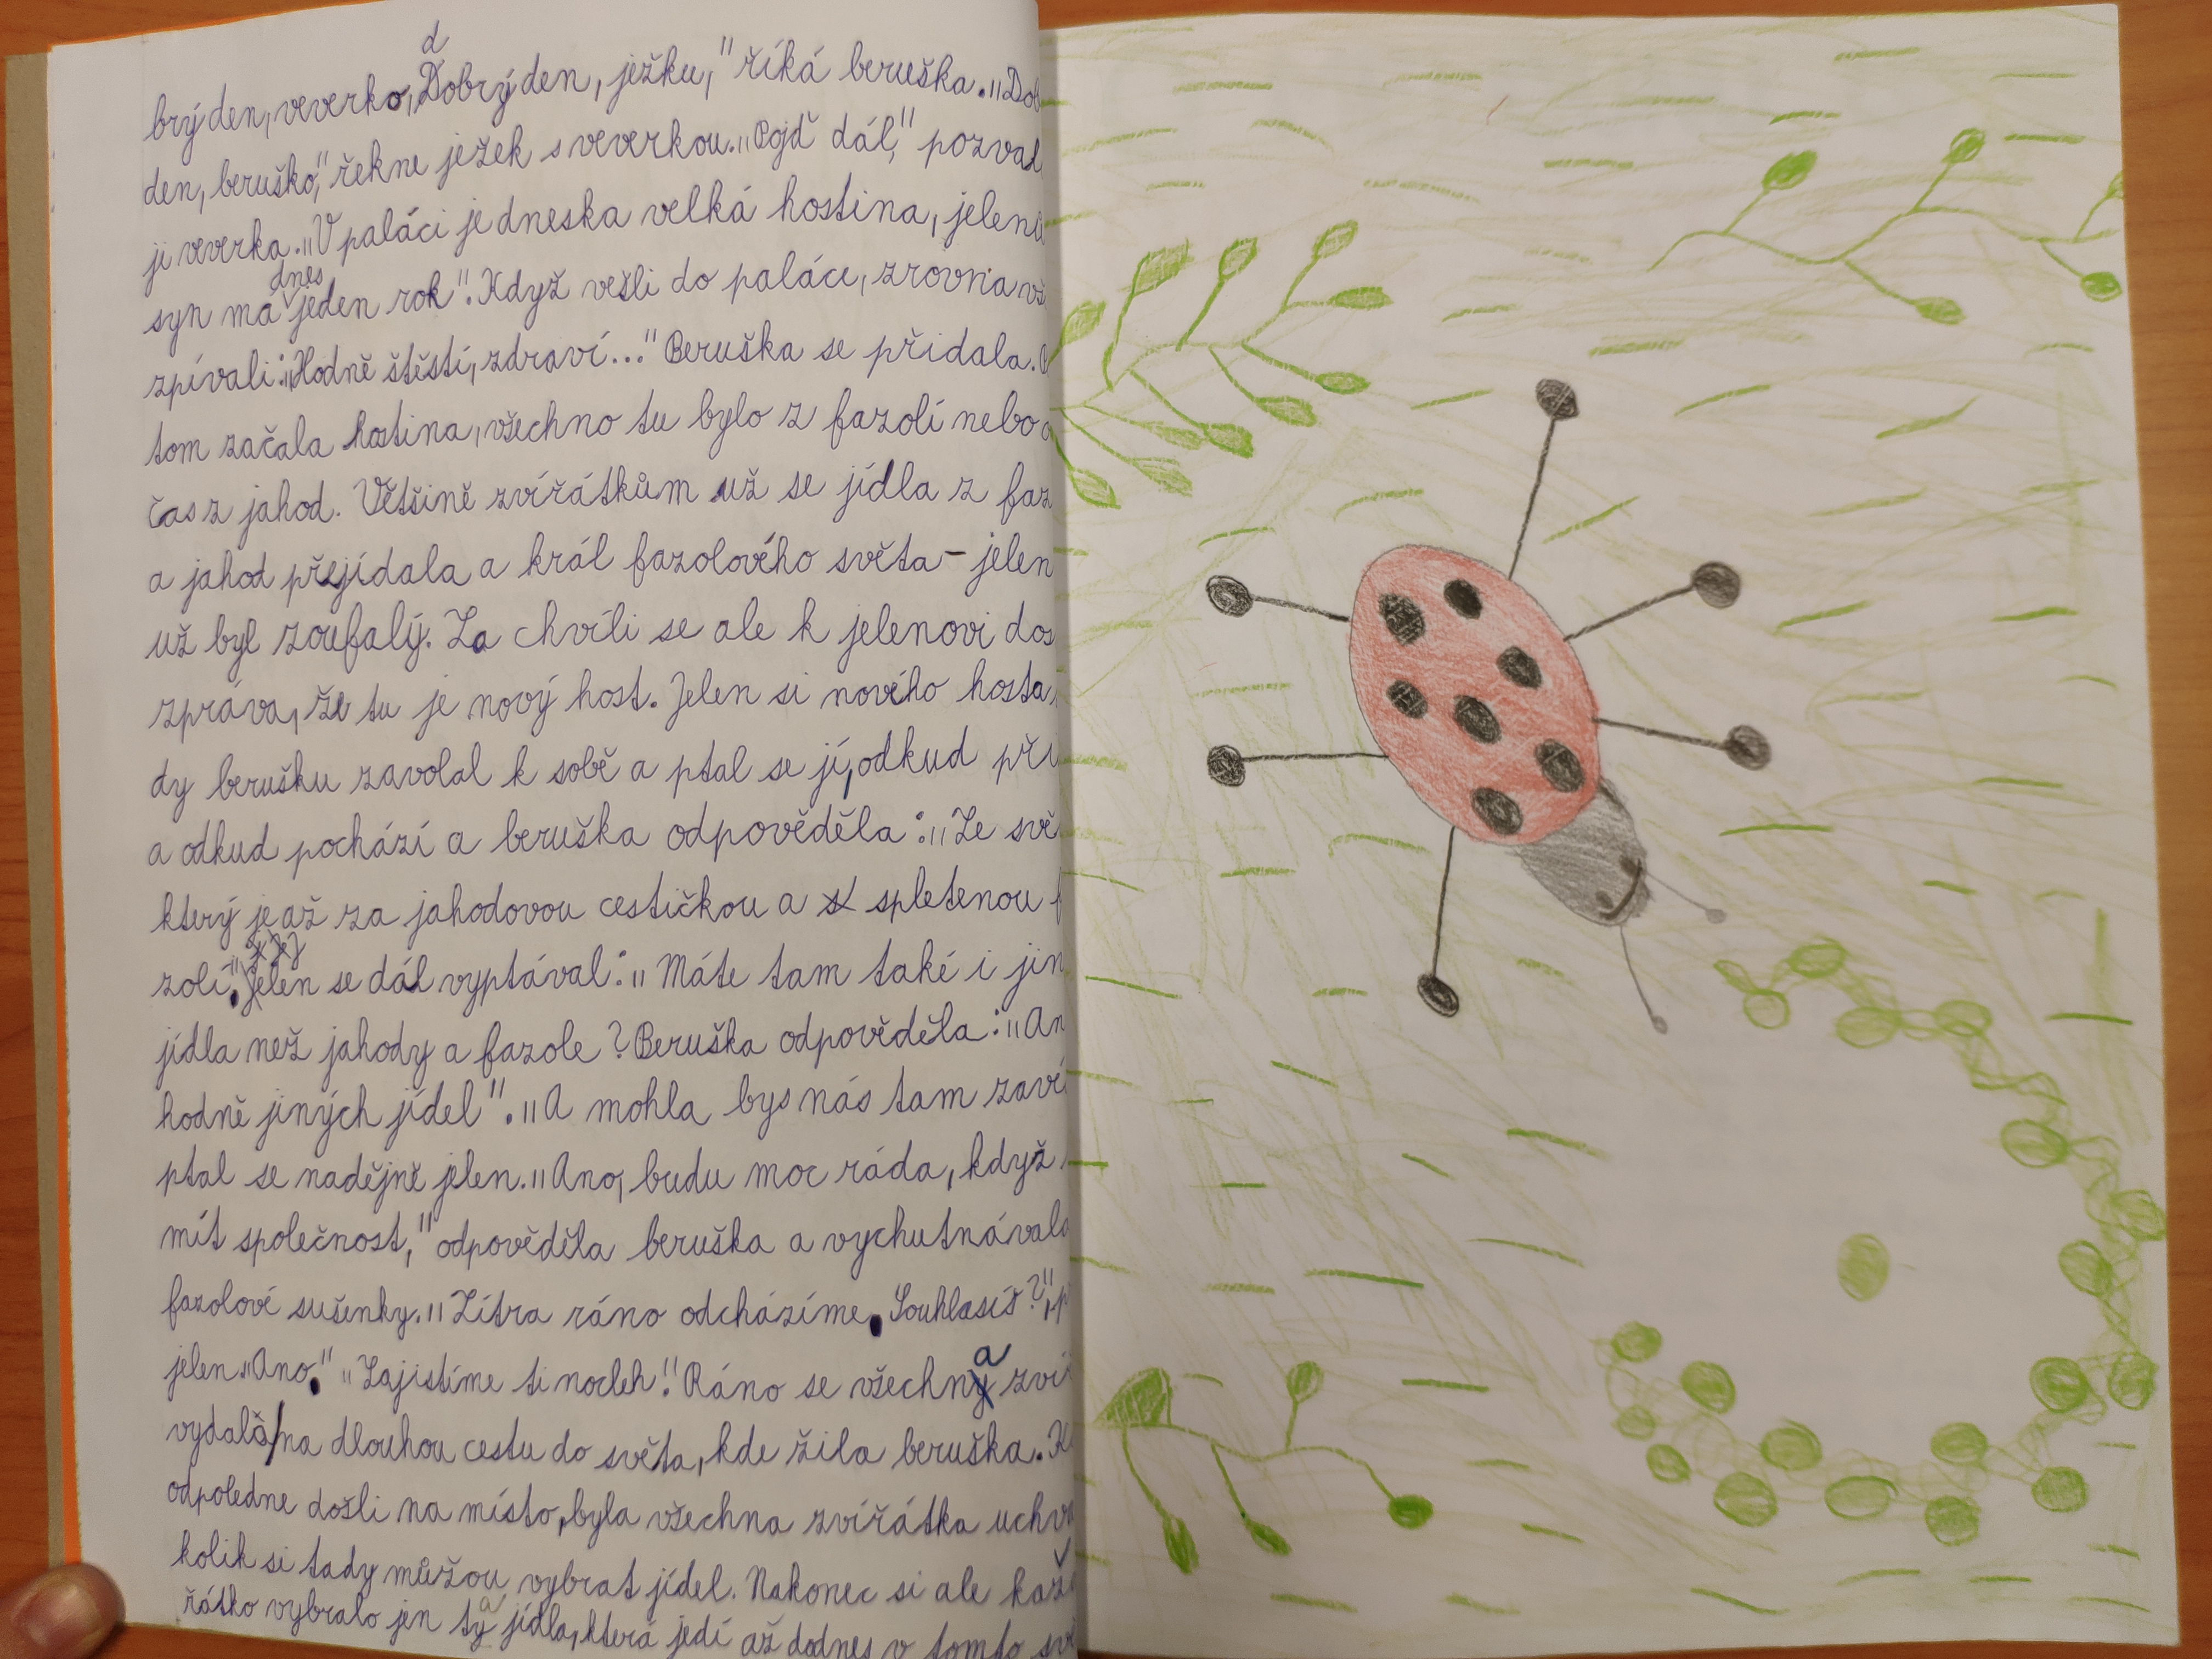 d
brý den, veverko, Dobrý den, ježku," říká beruška. „Dob
den, beruško," řekne ježek s veverkou. „Pojď dál," pozval
ji veverka. „V paláci je dneska velká hostina, jelenů
dnes
syn má jeden rok". Když vešli do paláce, zrovna vš
zpívali: „Hodně štěstí, zdraví..." Beruška se přidala. P
tom začala hostina, všechno tu bylo z fazolí nebo o
čas z jahod. Většině zvířátkům už se jídla z faz
a jahod přejídala a král fazolového světa - jelen
už byl zoufalý. Za chvíli se ale k jelenovi dos
zpráva, že tu je nový host. Jelen si nového hosta,
dy berušku zavolal k sobě a ptal se jí, odkud při
a odkud pochází a beruška odpověděla: „Ze svě
který je až za jahodovou cestičkou a spletenou f
zolí." Jelen se dál vyptával: „Máte tam také i jin
jídla než jahody a fazole? Beruška odpověděla: „An
hodně jiných jídel". „A mohla bys nás tam zaví
ptal se nadějně jelen. „Ano, budu moc ráda, když
mít společnost," odpověděla beruška a vychutnávala
fazolové sušenky. „Zítra ráno odcházíme. Souhlasíš?", p
jelen. „Ano." „Zajistíme ti nocleh." Ráno se všechna zví
vydala na dlouhou cestu do světa, kde žila beruška. K
odpoledne došli na místo, byla všechna zvířátka uchv
kolik si tady můžou vybrat jídel. Nakonec si ale kaž
řátko vybralo jen ta jídla, která jedí až dodnes v tomto svě